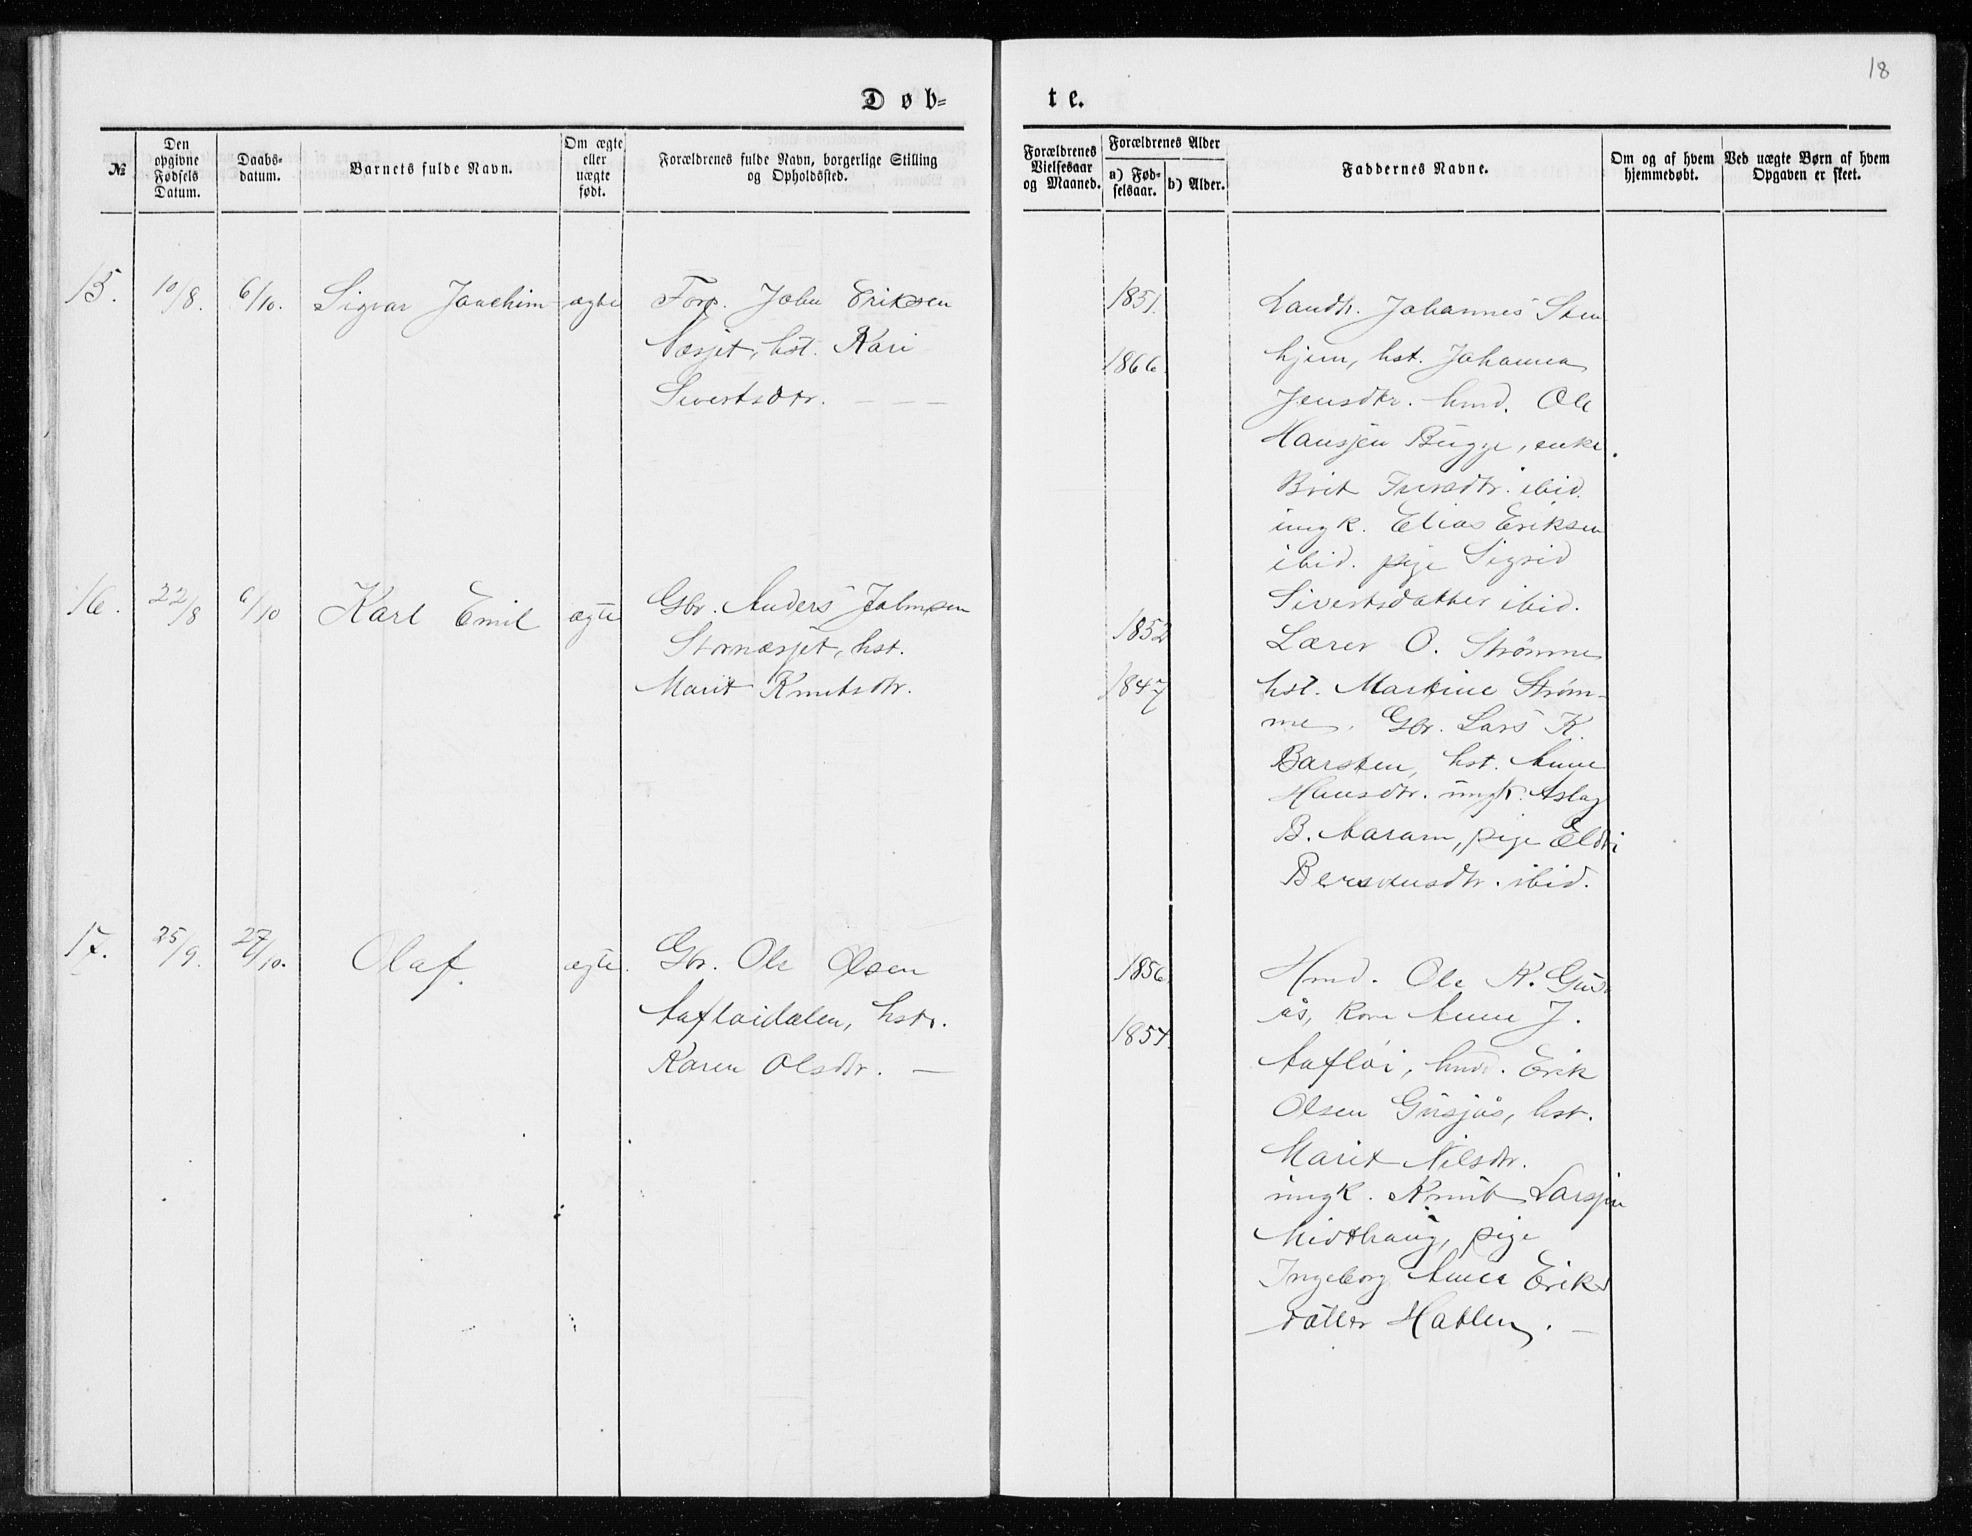 18
Døb-
te.
№
Den opgivne Fødsels Datum.
Daabs-datum.
Barnets fulde Navn.
Om ægte eller uægte født.
Forældrenes fulde Navn, borgerlige Stilling og Opholdssted.
Forældrenes Vielsesaar og Maaned.
Forældrenes Alder
a) Fød-selsaar.
b) Alder.
Faddernes Navne.
Om og af hvem hjemmedøbt.
Ved uægte Børn af hvem Opgaven er skeet.
15. 10/8. 6/10. Sigvar Joachim ægte Forp. John Eriksen
Næsjet, hst. Kari
Sivertsdtr.
1851.
1866.
Landh. Johannes Sten
hjem, hst. Johanna
Jensdtr. hmd. Ole
Hansjen Bugge, enke
Brit Iversdtr. ibid.
ungk. Elias Eriksen
ibid. pige Sigrid
Sivertsdatter ibid.
16. 22/8 6/10 Karl Emil ægte Gbr. Anders Johnsen
Stornæsjet, hst.
Marit Knutsdtr.
1852
1847
Lærer O. Strømme
hst. Martine Strøm-
me. Gbr. Lars K.
Barsten, hst. Anne
Hansdtr. ungk. Aslag
B. Aaram, pige Eldri
Bersvensdtr. ibid.
17. 25/9. 27/10. Olaf. ægte. Gbr. Ole Olsen
Aafløidalen, hstr.
Karen Olsdtr. —
1856
1854.
Hmd. Ole K. Gus
ås, kone Anne J.
Aafløi, hmd. Erik
Olsen Gusjås, hst.
Marit Nilsdtr.
ungk. Knut Larsjen
Midthaug, pige
Ingeborg Anna Eriks
datter Hatlen. —